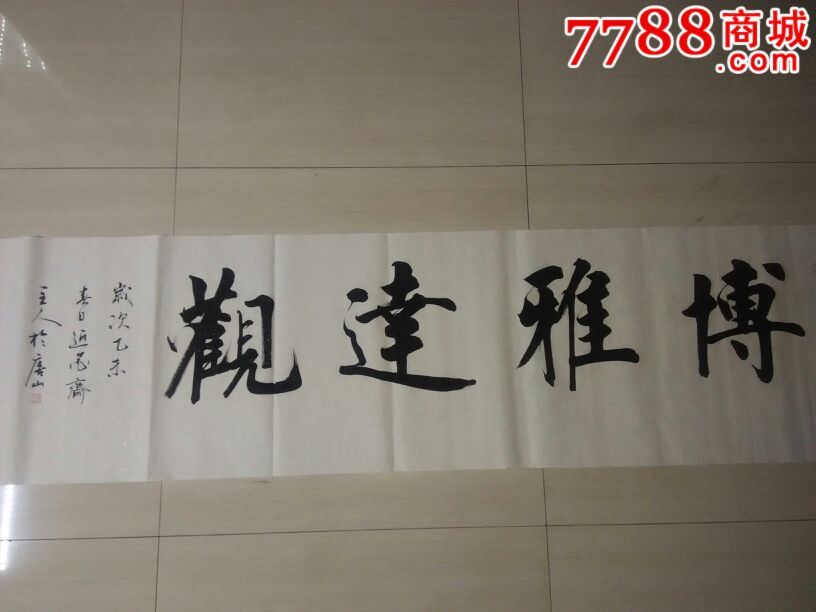 7788商城
.com
博雅達觀
歲次乙未
春日近思齋
主人於唐山